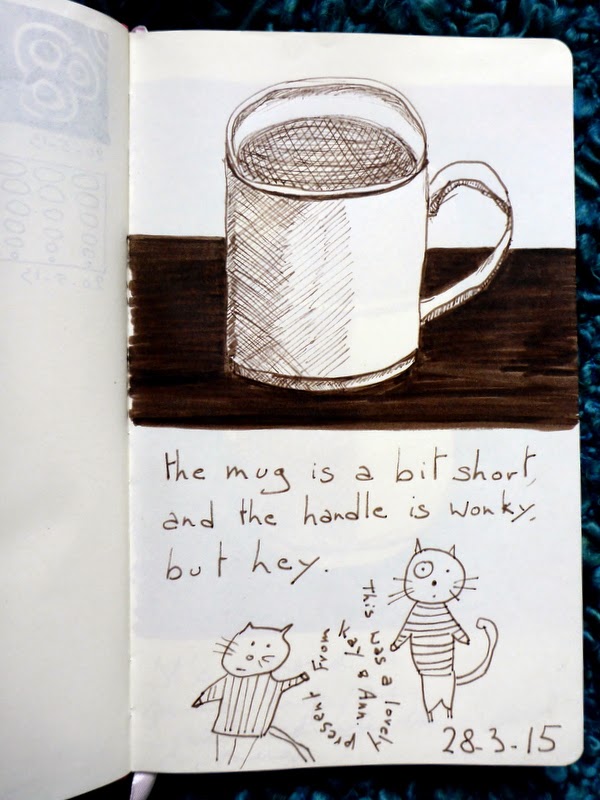 the mug is a bit short,
and the handle is wonky,
but hey.
This was a lovely
present
from
Kay & Ann.
28-3-15